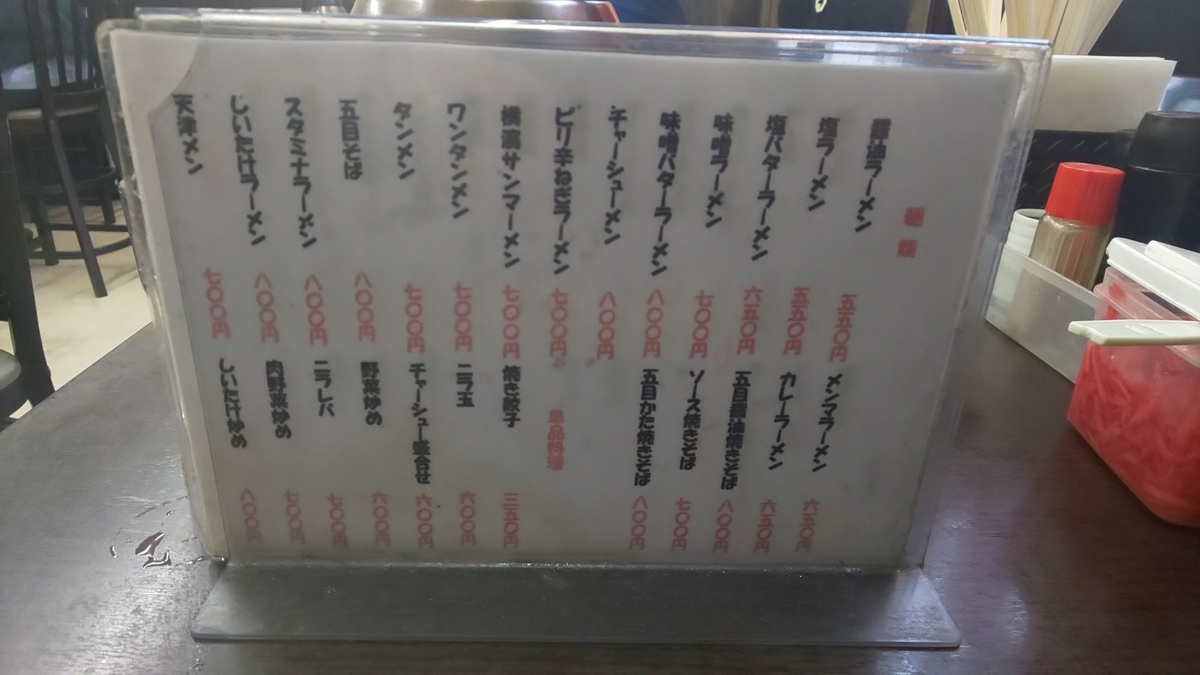 麺類
醤油ラーメン 五五〇円
塩ラーメン 五五〇円
塩バターラーメン 六五〇円
味噌ラーメン 七〇〇円
味噌バターラーメン 八〇〇円
チャーシューメン 八〇〇円
ピリ辛ねぎラーメン 七〇〇円
横濱サンマーメン 七〇〇円
ワンタンメン 七〇〇円
タンメン 七〇〇円
五目そば 八〇〇円
スタミナラーメン 八〇〇円
しいたけラーメン 八〇〇円
天津メン 七〇〇円
メンマラーメン 六五〇円
カレーラーメン 六五〇円
五目醤油焼きそば 八〇〇円
ソース焼きそば 七〇〇円
五目かた焼きそば 八〇〇円
単品料理
焼き餃子 三五〇円
ニラ玉 六〇〇円
チャーシュー盛合せ 六〇〇円
野菜炒め 六〇〇円
ニラレバ 七〇〇円
肉野菜炒め 七〇〇円
しいたけ炒め 八〇〇円